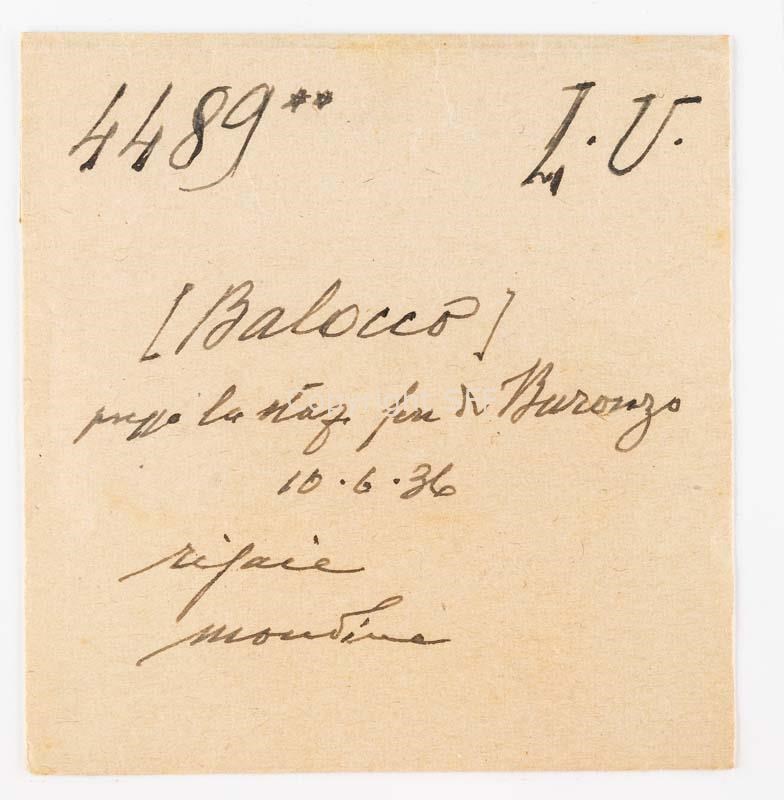 4489** I. V.
[Balocco]
presso la staz. ferr di Buronzo
10.6.36
risaie
mondine